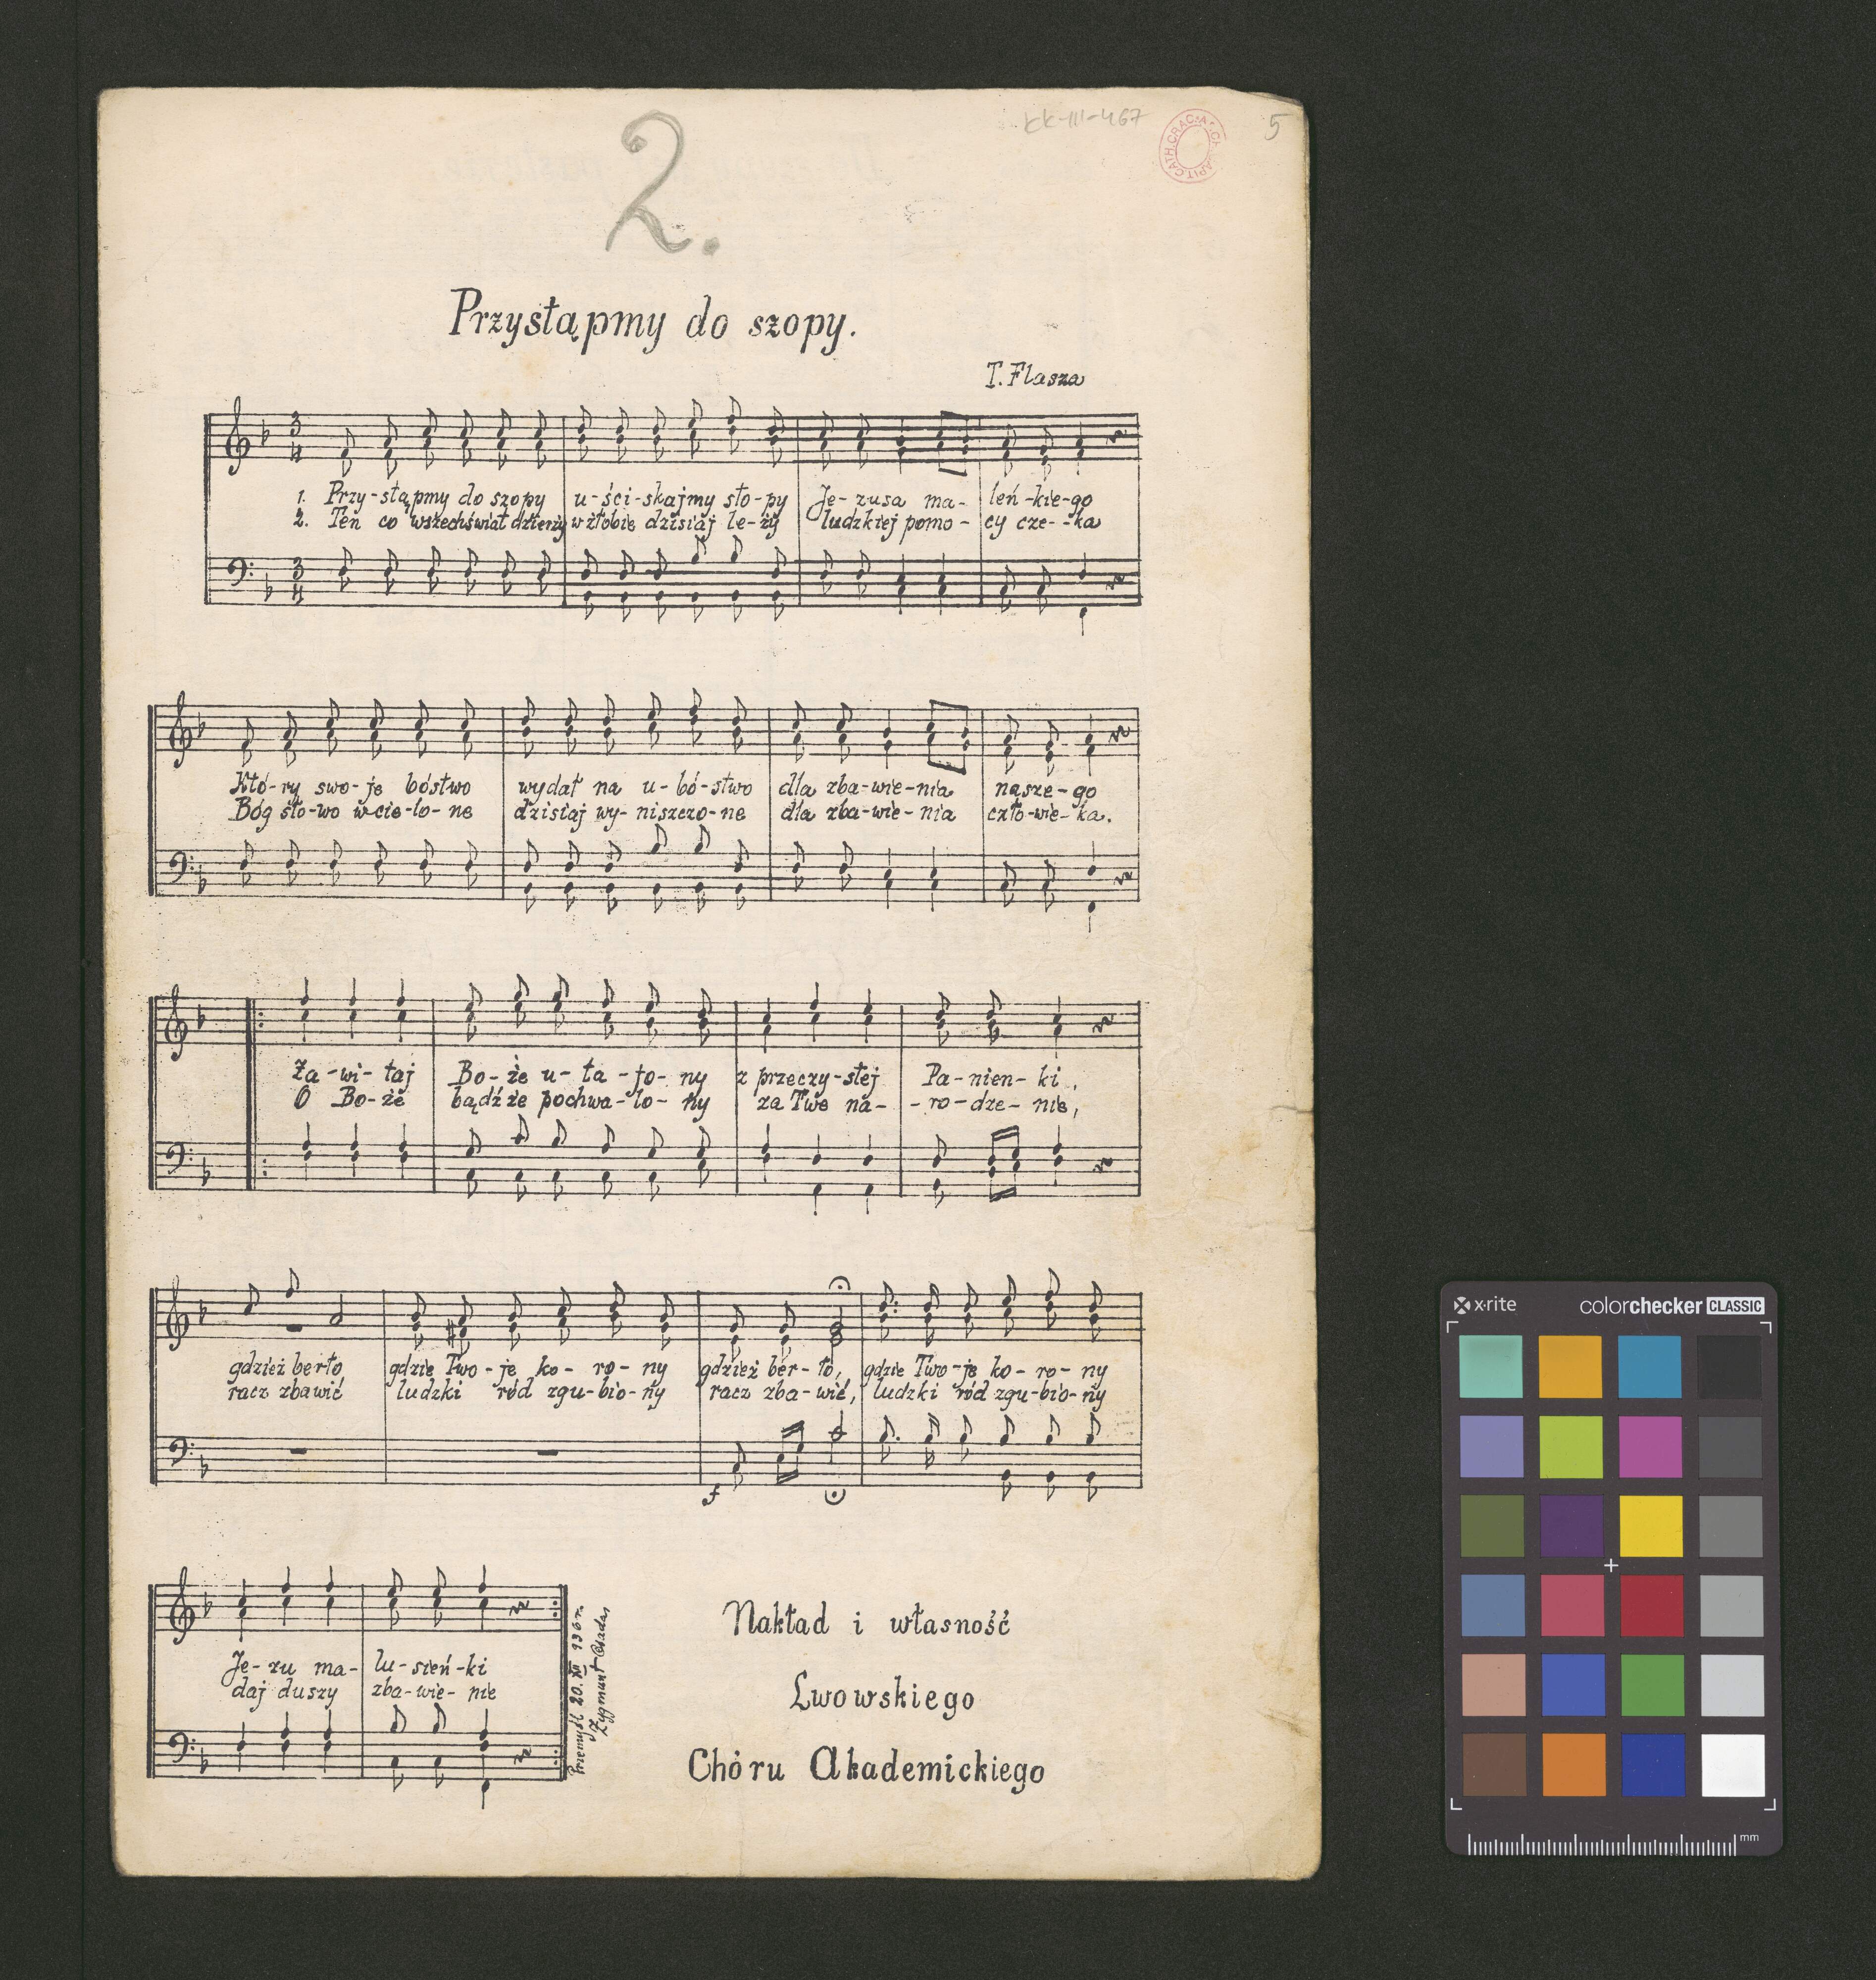 KK-III-467
5
CATH.CRAC.
2.
Przystąpmy do szopy.
T. Flasza
3 4
1. Przy-stąpmy do szopy u-ści-skajmy sto-py Je-zusa ma-leń-kie-go
2. Ten co wszechświat dzierży w żłobie dzisiaj le-ży ludzkiej pomo-cy cze--ka
3 4
Któ-ry swo-je bóstwo wydał na u-bó-stwo dla zba-wie-nia nasze-go
Bóg sło-wo wcie-lo-ne dzisiaj wy-niszczo-ne dla zba-wie-nia czło-wie-ka.
Za-wi-taj Bo-że u-ta-jo-ny z przeczy-stej Pa-nien-ki,
O Bo-że bądźże pochwa-lo-ny za Twe na--ro-dze-nie,
gdzież berło gdzie Two-je ko-ro-ny gdzież ber-ło, gdzie Two-je ko-ro-ny
racz zbawić ludzki ród zgu-bio-ny racz zba-wić, ludzki ród zgu-bio-ny
f
Je-zu ma-lu-sień-ki
daj duszy zba-wie-nie
Przemyśl 20. XI 936 r.
Zygmunt
Nakład i własność
Lwowskiego
Chóru Akademickiego
x-rite
colorchecker CLASSIC
mm